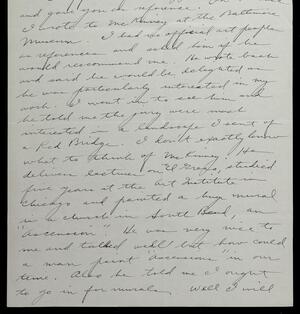 and gave you as reference.
I wrote to McKinney at the Baltimore
Museum. I had no official art people
as references and asked him if he
would recommend me. He wrote back
and said he would be delighted as
he was particularly interested in my
work. I went in to see him and
he told me the jury were most
interested in a landscape I sent of
a Red Bridge. I don't exactly know
what to think of McKinney. He
delivers lectures on El Greco, studied
five years at the Art Institute in
Chicago and painted a huge mural
in a church in South Bend, an
"Ascension" He was very nice to
me and talked well but how could
a man paint "Ascensions" in our
time. Also he told me I ought
to go in for murals. Well I will